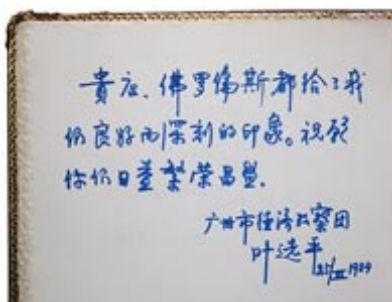 貴店、佛罗倫斯都给了我
们良好而深刻的印象。祝愿
你们日益繁荣昌盛.
广州市经济考察团
叶选平